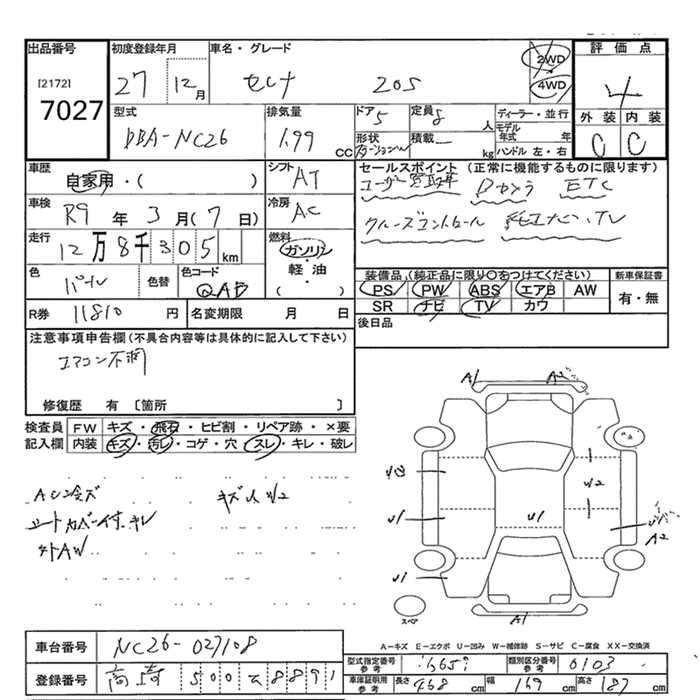 出品番号 初度登録年月 車名・グレード 評価点
[2172] 7027 27 12月 セレナ 20S 2WD 4WD 4
型式 排気量 ドア 5 定員 8 人 ディーラー・並行 外装 内装
DBA-NC26 1.99 CC 形状 積載 ー kg モデル年式 年 C C
ハンドル 左・右
車歴 自家用・( ) シフト AT セールスポイント (正常に機能するものに限ります)
ユーザー買取車 Bカメラ ETC
車検 R9年 3月(7日) 冷房 AC クルーズコントロール 純正ナビ・TV
走行 12万8千305km 燃料 ガソリン 軽・油 ( )
色 パール 色替 色コード QAB 装備品 (純正品に限り○をつけてください) 新車保証書
PS PW ABS エアB AW 有・無
SR ナビ TV カワ
R券 11810円 名変期限 月 日 後日品
注意事項申告欄(不具合内容等は具体的に記入して下さい)
エアコン不調
修復歴 有 〔箇所 〕
検査員 FW キズ・飛石・ヒビ割・リペア跡・×要
記入欄 内装 キズ・汚レ・コゲ・穴・スレ・キレ・破レ
A1 A2
ACメズ キズ人W2
シートカバー付.キレ
外AW
W2 U1 U1 U1 W2 A2
スペア A1
車台番号 NC26-027108
A-キズ E-エクボ U-凹み W-補修跡 S-サビ C-腐食 XX-交換済
型式指定番号 類別区分番号 0103
登録番号 高崎 500 8891 車庫証明用参考 長さ 468cm 幅 169cm 高さ 187cm